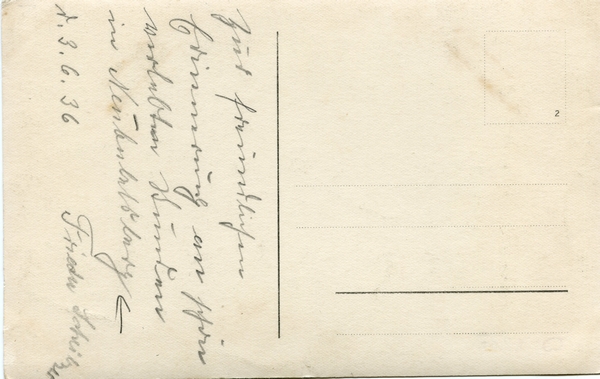 Zur freundlichen
Erinnerung an schön
verlebten Stunden
in Neubabelsberg
d. 3. 6. 36
Frieda
2